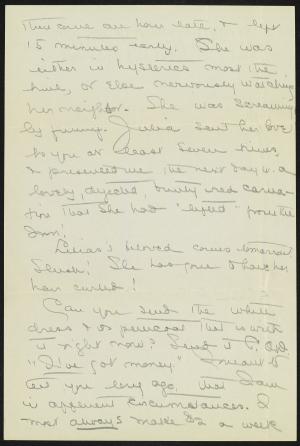 They came an hour late, & left
15 minutes early. She was
either in hysterics most the
time, or else nervously watching
her neighbor. She was screamingly
by funny. Julia sent her love
to you at least seven times,
& presented me the next day w. a
lovely, dejected, brick red carna-
tion that she had "lifted" from the
Inn!
Lilias's beloved comes tomorrow!
She has gone to have her
hair curled!
Can you send the white
dress & petticoat that is with
it right now? Send it C.O.D.
"I've got money." I meant to
tell you long ago, that I am
in affluent circumstances. I
most always make $2 a week